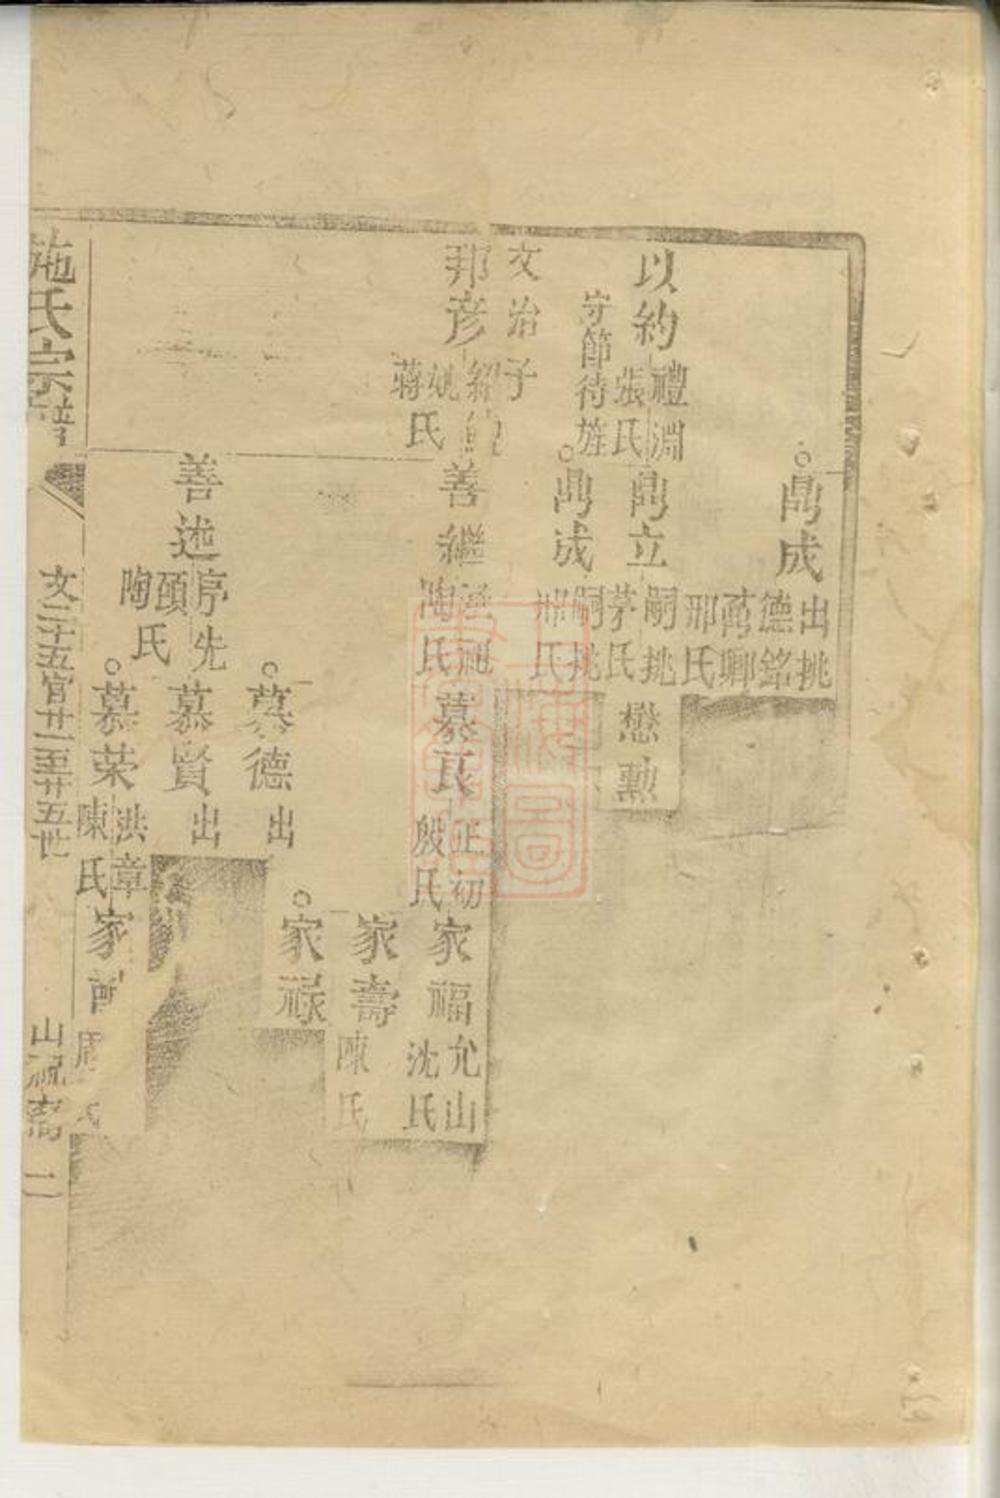 鼎成
出挑
德銘
萬卿
邢氏
以約
禮淵
張氏
守節待旌
鼎立
嗣挑
茅氏
懋勲
鼎成
嗣挑
邢氏
文治子
邦彦
姚
蔣氏
善繼
陶氏
慕良
正初
殷氏
家福
允山
沈氏
家壽
陳氏
家禄
善述
序先
頭
陶氏
慕德
出
慕賢
出
慕荣
洪章
陳氏
家
施氏宗譜
文二十五官廿一至廿五世
二